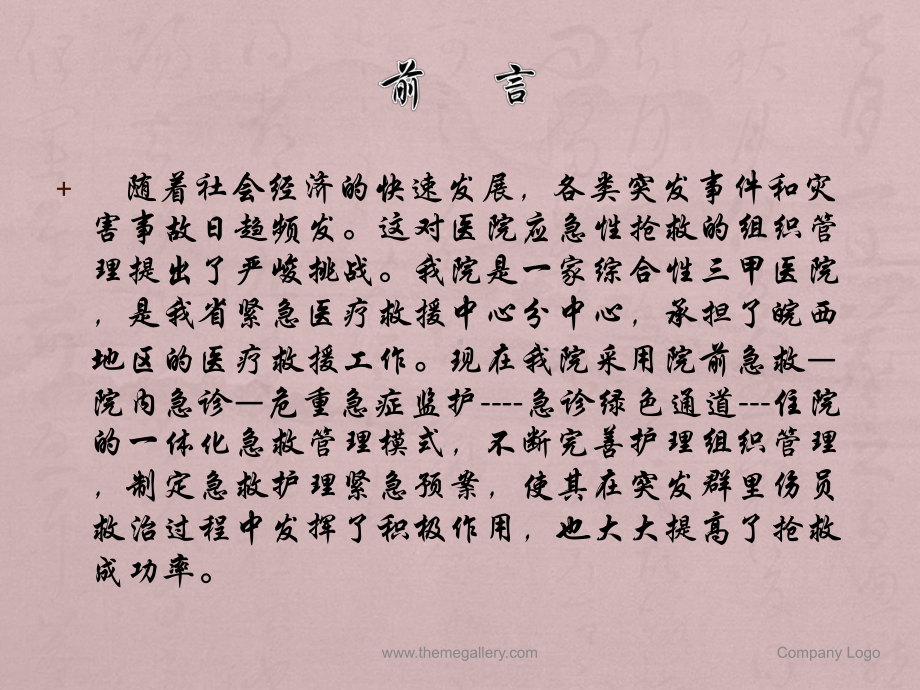 前 言
+ 随着社会经济的快速发展，各类突发事件和灾
害事故日趋频发。这对医院应急性抢救的组织管
理提出了严峻挑战。我院是一家综合性三甲医院
，是我省紧急医疗救援中心分中心，承担了皖西
地区的医疗救援工作。现在我院采用院前急救—
院内急诊—危重急症监护----急诊绿色通道---住院
的一体化急救管理模式，不断完善护理组织管理
，制定急救护理紧急预案，使其在突发群里伤员
救治过程中发挥了积极作用，也大大提高了抢救
成功率。
www.themegallery.com
Company Logo